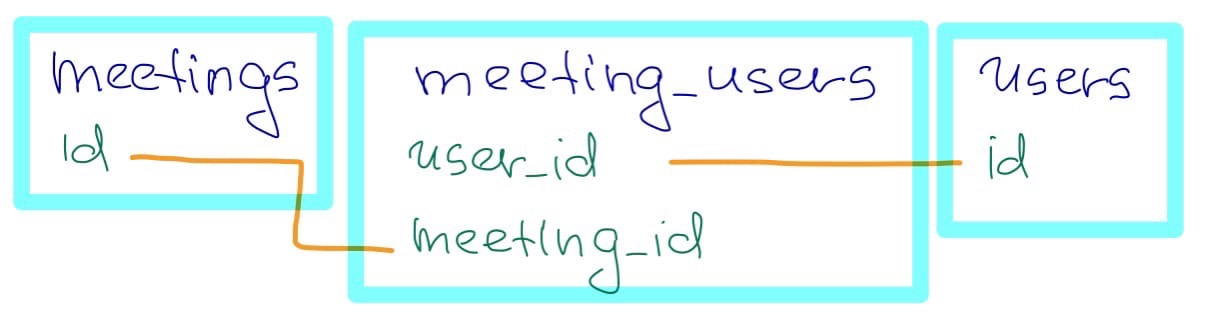 meetings
id
meeting_users
user_id
meeting_id
users
id